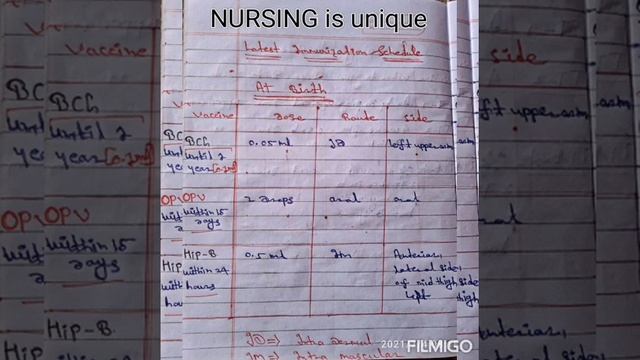 NURSING is unique
Latest Immunization Schedule
At Birth
Vaccine Dose Route Side
BCG until 2 year 0.05 ml ID left upper arm
OPV within 15 days 2 drops oral oral
Hip-B within 24 hours 0.5 ml Im Anterior, lateral side, of mid thigh left
ID => Intra dermal
IM => Intra muscular
2021
FILMIGO